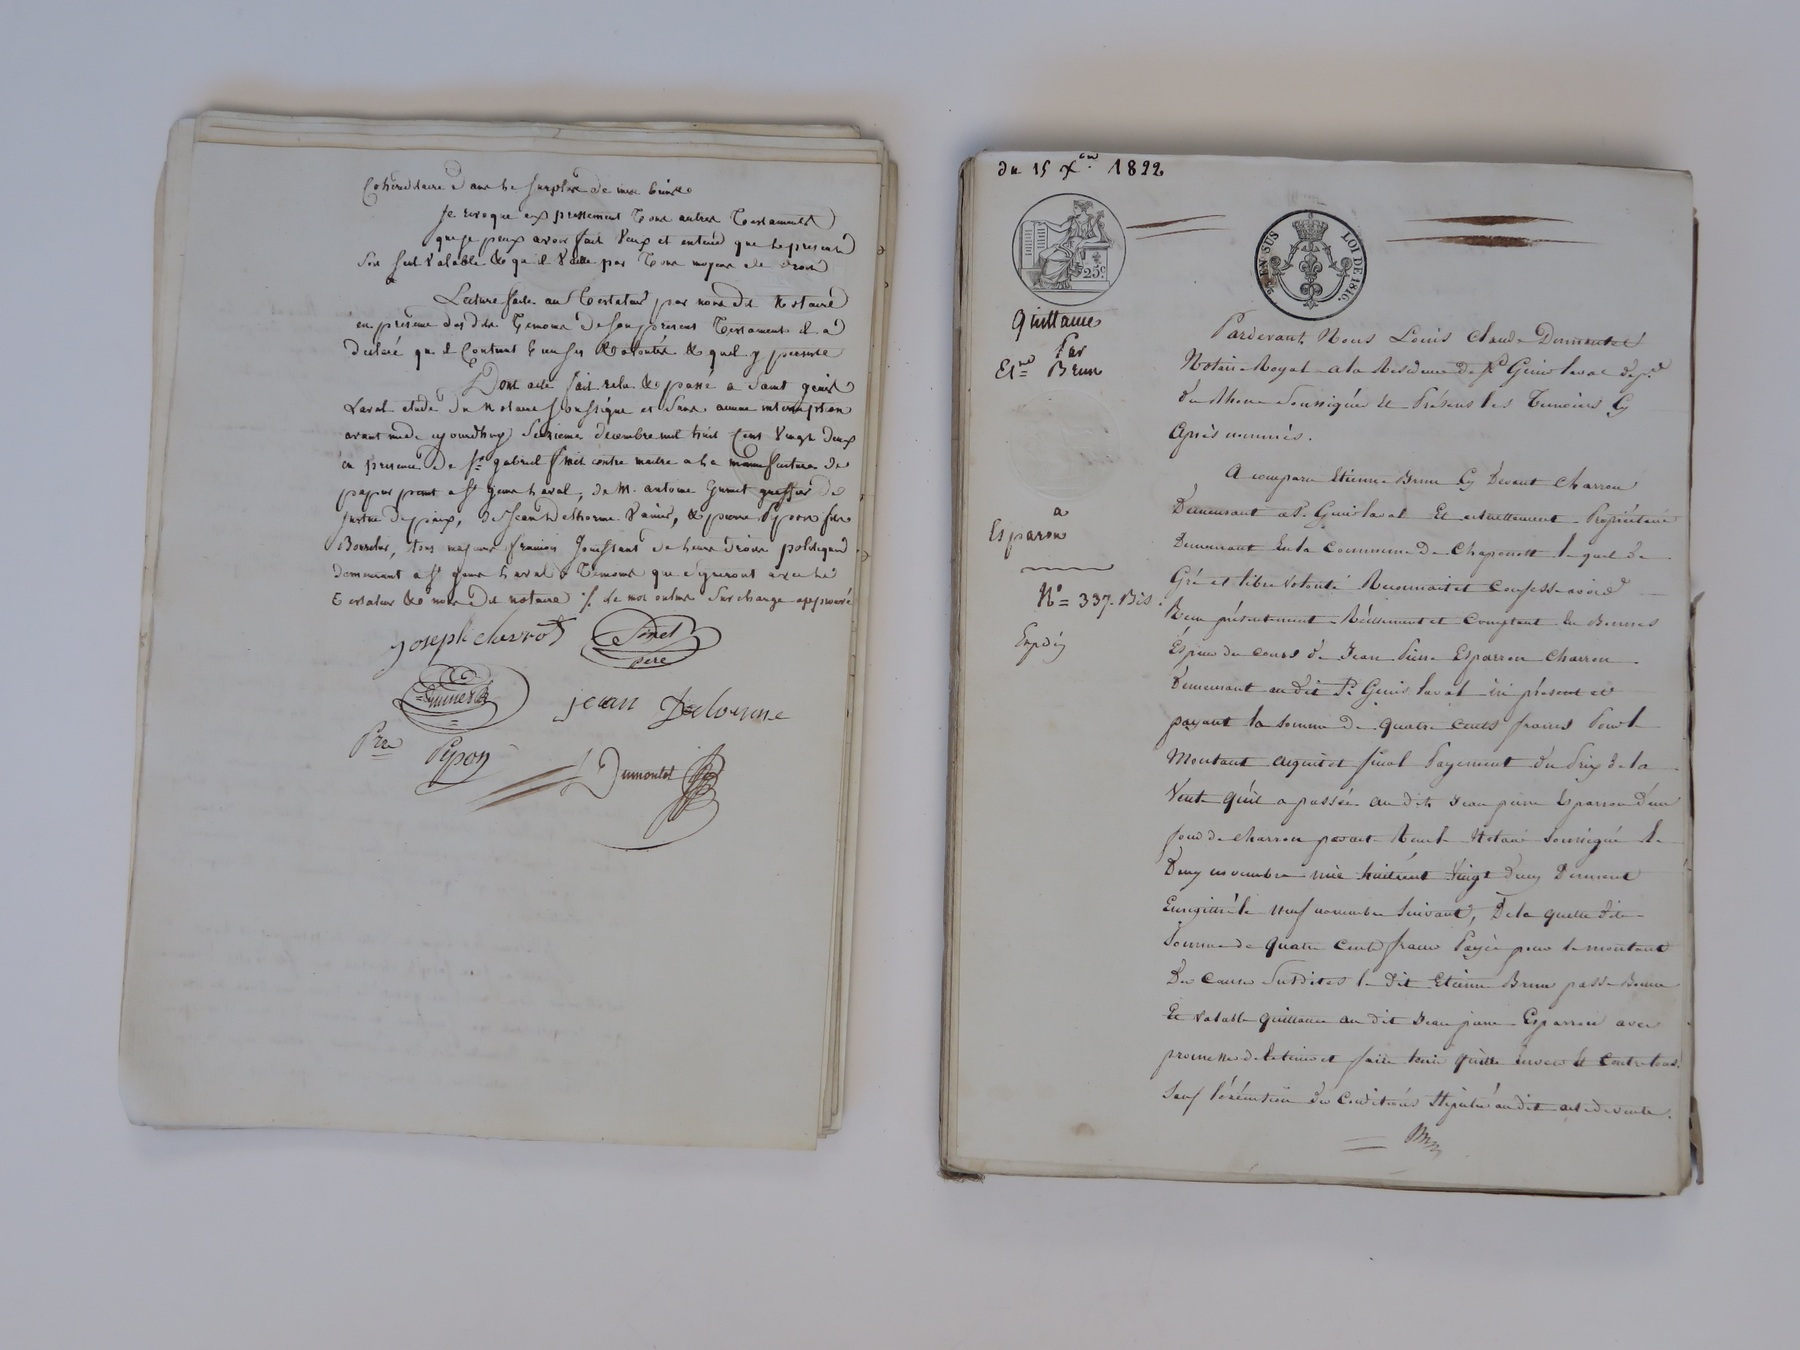 Cohéreditaire dans le surplus de mes biens
Je revoque expressement tous autres testaments
que je peux avoir fait veux et entend que le present
soit seul valable & qu'il vaille par tous moyens de droit
Lecture faite au Testateur par nous dit Notaire
en présence des dits temoins de son present testament il a
declaré qu'il contient ses volontés & quel y persiste
Dont acte fait relu & passé a Saint genis
Laval etude du Notaire soussigné et sans aucune interruption
avant midi ajourdhuy seizieme decembre mil huit cent vingt deux
en presence de Sr gabriel Finet contre maitre a la manufacture de
papier peint a St genis Laval, de M. antoine guinet greffier de
justice de paix, de jean delhorme, & pierre Pypon fils
Bourelier, tous majeurs francais jouissant de leurs droits politiques
demeurant a St genis Laval temoins que signeront avec le
testateur & nous dit notaire ./. Le mot surcharge approuvé
joseph
Finet
père
Guinet
jean Delorme
Pre Pypon
Dumontet
du 15 Xbre 1822
25 c
EN SUS LOI DE 1816.
Quittance
Par
Etne Brun
a
Esparron
No = 337. Bis.
Expdié
Pardevant Nous Louis Claude Dumontet
Notaire Royal a la Residence de St Genis laval dept
du Rhone Soussigné et Présens les Temoins Cy
Après nommés.
A comparu Etienne Brun Cy Devant Charron
Demeurant a St Genis laval Et actuellement Propriétaire
Demeurant En la commune de Chaponost lequel de
Gré et libre volonté Reconnait et Confesse avoir
Reçu présentement Réellement et Comptant En Bonnes
Espèces de cours de Jean Pierre Esparron Charron
Demeurant au dit St Genis laval ici présent et
payant la somme de quatre cents francs Pour le
Montant et final Payement du Prix de la
Vente qu'il a passée au dit Jean pierre Esparron d'un
fond de charron pardevant le Notaire Soussigné le
Deux novembre mil huit cent Vingt deux Dument
Enregistré le neuf novembre Suivant, De la quelle dite
Somme de quatre cents francs Payée pour le montant
Des Causes Susdites le dit Etienne Brun passe Bonne
Et valable quittance au dit Jean pierre Esparron avec
promesse de le tenir et faire tenir quitte Envers Et Contre tous
Sauf l'exécution des Conditions Stipulées au dit acte de vente.